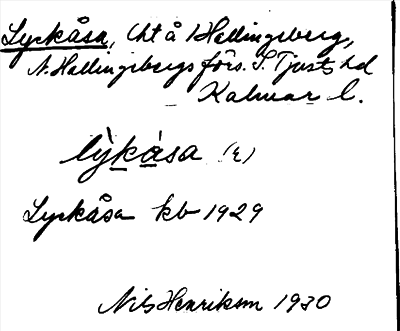 Lyckåsa, lht å Hallingeberg,
N. Hallingebergs förs. S. Tjusts hd
Kalmar l.
lỳkåsa (ɛ)
Lyckåsa kb 1929
Nils Henrikson 1930